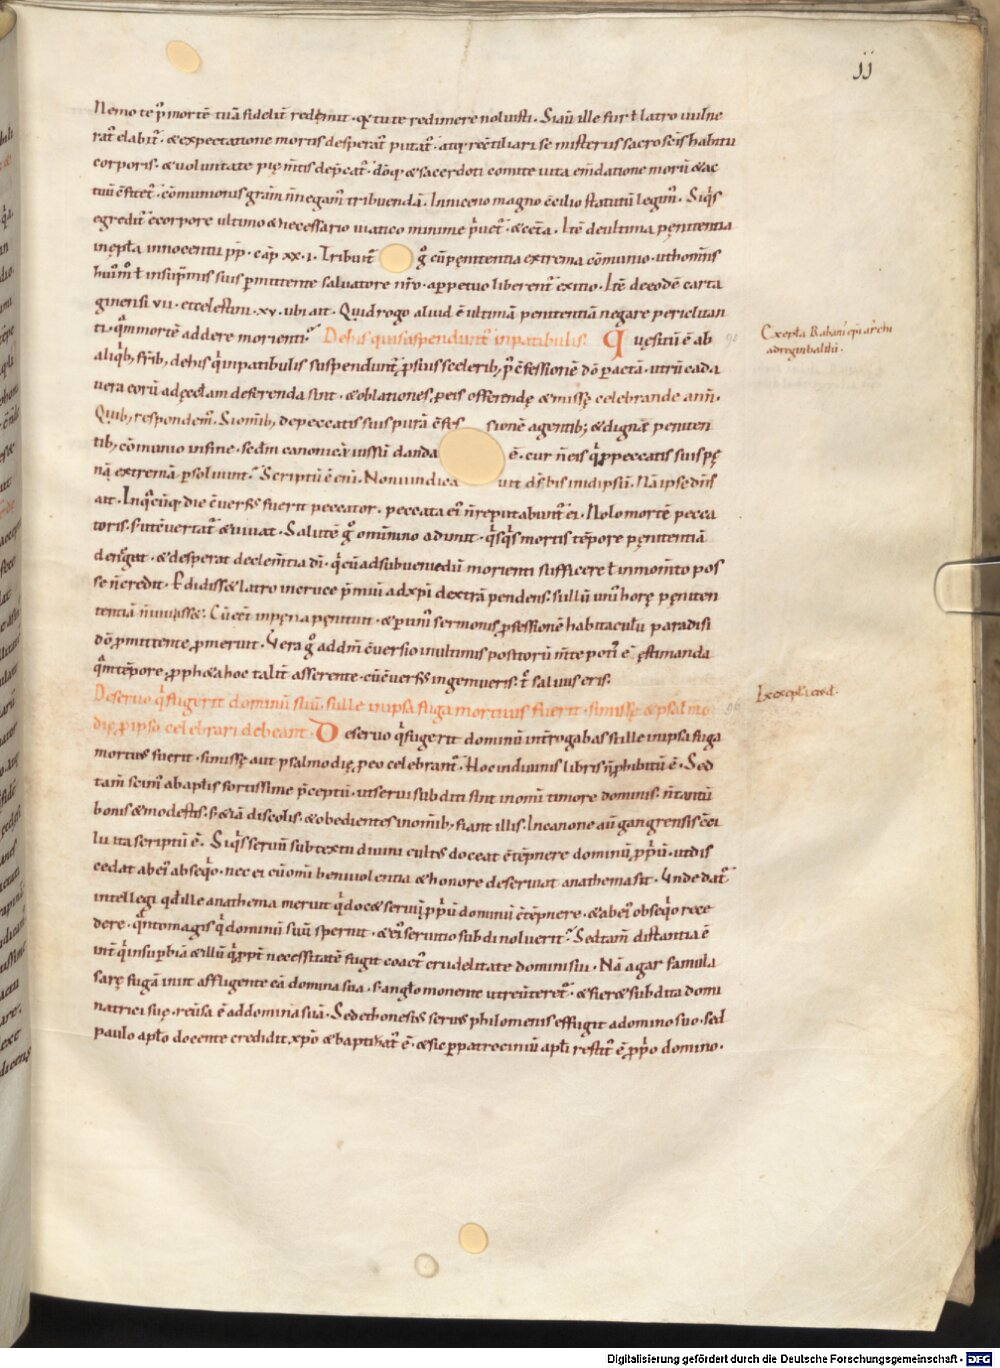 jj
Nemo te p̄ mortē tuā fidelit̄ redemit · q̄ tu te redimere noluisti · Siaū ille fur ł latro vulne
rat̄ elabit̄ · & expectatione mortis desperat̄ putat̄ · atq; recc̄iliari se misteriis sacroscīs habitu
corporis · & voluntate pię m̄tis dep̄cat̄ · dōq; & sacerdoti comite vita em̄datione morū & ac
tuū c̄fitet̄ · cōmunionis gr̄am n̄ negam̄ tribuendā · In niceno magno c̄cilio statutū legim̄ · Siq́s
egredit̄ e corpore ultimo & necessario viatico minime p̄uet̄ · & cet̄a · Itē de ultima pęnitentia
in epła innocentii pp̄ · cap̄ xx · i · Tribuit̄ g̊ cū pęnitentia extrema cōmunio · ut homīnis
hui'm̊ ł in sup̄mis suis p̄mittente salvatore nr̄o · a p̄petuo liberent̄ exitio · Itē de eodē carta
ginensi vii · et celestini · xv · ubi ait · Quid rogo aliud ē ultimā penitentiā negare periclitan
ti · q̄m mortē addere morienti · De his qui suspendunt̄ in patibulis · Quęsitū ē ab
aliq́b; fr̄ib; de his q́ in patibulis suspendunt̄ p̄ suis sceleribꝫ p̄ c̄fessionē dō pactā · utrū cada
vera eorū ad ęcclam deferenda sint · & oblationes p̄ eis offerendę & missę celebrande ann̄ ·
Quib; respondem̄ · Si omīb; de peccatis suis purā c̄fessionē agentib; & dignā peniten
tib; cōmunio in fine · sedm̄ canonicā iussū danda ē · cur n̄ eis q́ p̄ peccatis suis pę
nā extremā p̄solvunt · Scriptū ē eni · Non vindicavit d̄s bis in idipsū · Nā ipse dn̄s
ait · In q̄cūq; die c̄vers' fuerit peccator · peccata ei' n̄ reputabunt̄ ei · Nolo mortē pecca
toris · s; ut c̄vertat̄ & vivat · Salutē g̊ omīnino adimit · q́sq́s mortis tēpore pęnitentiā
denegat · & desperat de clem̄tia dī · q́ eū ad subveniedū morienti sufficere ł in mom̄to pos
se n̄ credit · P̄didiss& latro in cruce p̄miū ad xp̄i dextrā pendens · si illū uni' horę pęniten
tentiā n̄ iuvass& · Cū eēt in pęna pęnituit · & p̄ uni' sermonis p̄fessionē habitaculū paradisi
dō p̄mittente p̄meruit · Vera g̊ ad dm̄ c̄versio in ultimis positorū m̄te poti' ē ęstimanda
q̄m tēpore p̄ph&a hoc talit̄ asserente · cū c̄vers' ingemueris · t̄ salvus eris ·
De servo q́ fugerit dominū suū · si ille in ipsa fuga mortuus fuerit · si missę & psalmo
dię p̄ ipso celebrari debeant · De servo q́ fugerit dominū int̄rogabas si ille in ipsa fuga
mortuus fuerit · si missę aut psalmodię p̄ eo celebrant̄ · Hoc in divinis libris n̄ p̄hibitū ē · Sed
tam̄ scim' ab apłis fortissime p̄ceptū · ut servi subditi sint in omi timore dominis · n̄ tantū
bonis & modestis · s; & iā discolis · & obedientes in omīb; fiant illis · In canone aū gangrensis c̄ci
lii ita scriptū ē · Siq́s servū sub textu divini cult' doceat c̄tēpnere dominū p̄priū · ut dis
cedat ab ei' obseq́o · nec ei cū omi benivolentia & honore deserviat anathema sit · Unde dat̄
intellegi qđ ille anathema meruit q́ doc& servū p̄priū dominū c̄tēpnere · & ab ei' obseq́o rece
dere · q̄ntomagis q́ dominū suū spernit · & ei' servitio subdi noluerit · Sed tam̄ distantia ē
int̄ q́ in sup̄biā & illū q́ p̄pt̄ necessitatē fugit coact' crudelitate domini sui · Nā agar famula
sarę fugā iniit affligente eā domina sua · s; angło monente ut rev̄teret̄ · & fier& subdita domi
natrici suę · rev̄sa ē ad dominā suā · Sed et honesim' servus philomenis effugit a domino suo · sed
paulo apło docente credidit xp̄o & baptizat' ē · & sic p̄ patrociniū apłi restitut' ē p̄prio domino ·
90
Excepta Rabani epi archi
ad reginbaldū ·
96
Ex except eiusd ·
Digitalisierung gefördert durch die Deutsche Forschungsgemeinschaft - DFG